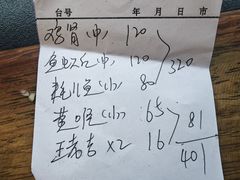 台号 年 月 日 市
鸡肾(中) 120
鱼蚁瓜(中) 120
耗儿鱼(小) 80
320
黄喉(小) 65
王老吉 X2 16
81
401